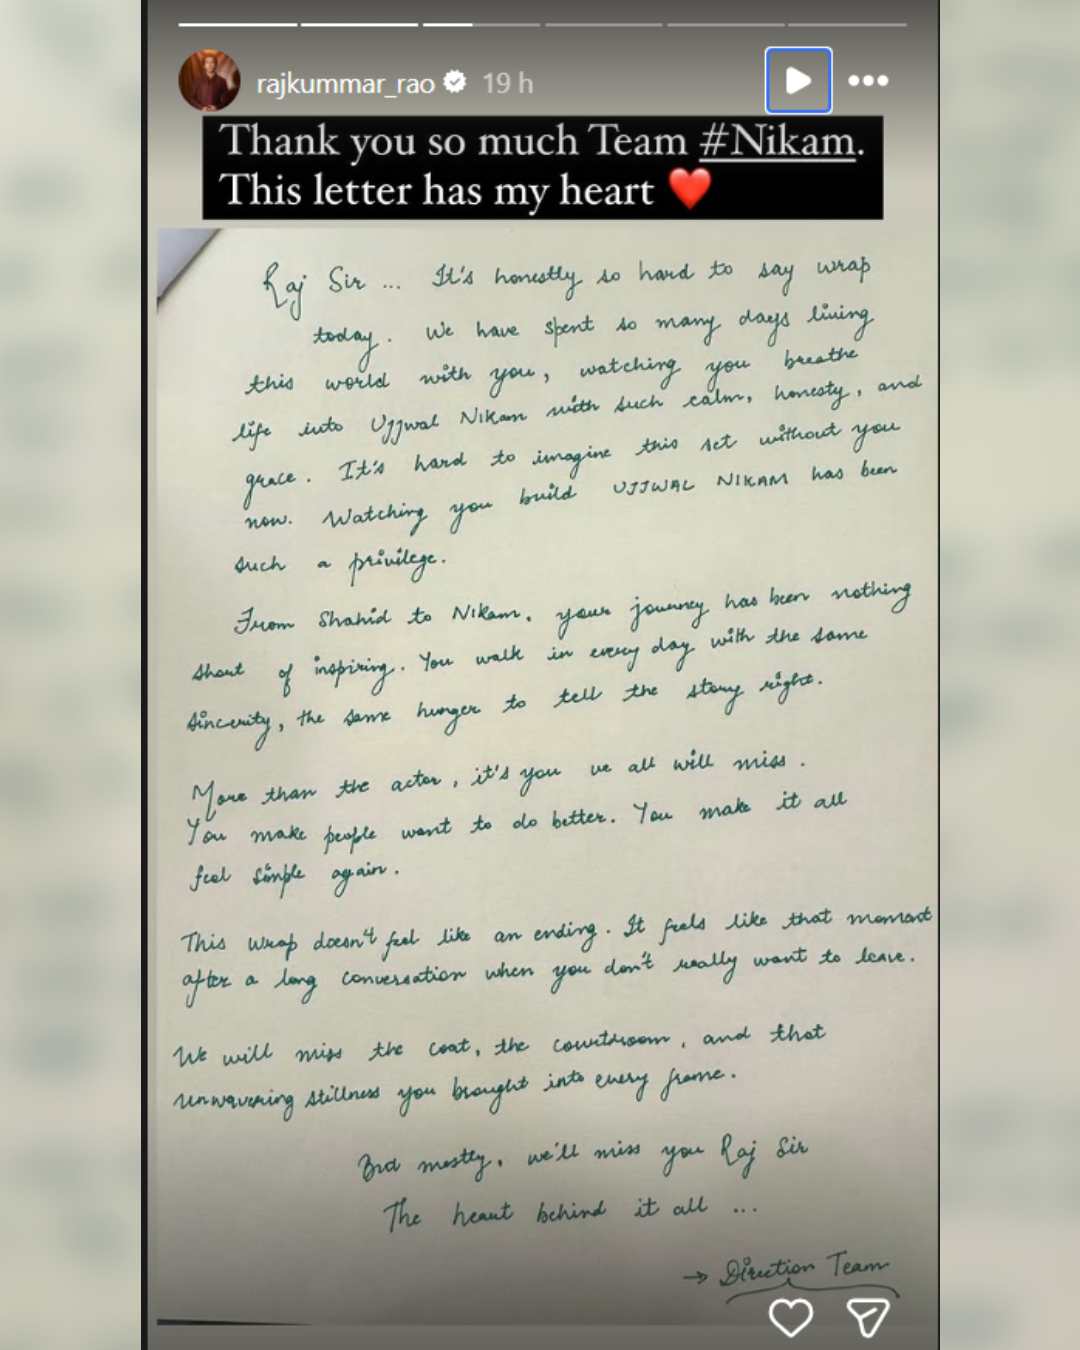 rajkummar_rao 19 h
Thank you so much Team #Nikam.
This letter has my heart ❤️
Raj Sir ... It's honestly so hard to say wrap
today. We have spent so many days living
this world with you, watching you breathe
life into Ujjwal Nikam with such calm, honesty, and
grace. It's hard to imagine this set without you
now. Watching you build UJJWAL NIKAM has been
such a privilege.
From Shahid to Nikam, your journey has been nothing
short of inspiring. You walk in every day with the same
sincerity, the same hunger to tell the story right.
More than the actor, it's you we all will miss.
You make people want to do better. You make it all
feel simple again.
This wrap doesn't feel like an ending. It feels like that moment
after a long conversation when you don't really want to leave.
We will miss the coat, the courtroom, and that
unwavering stillness you brought into every frame.
But mostly, we'll miss you Raj Sir
The heart behind it all ...
→ Direction Team